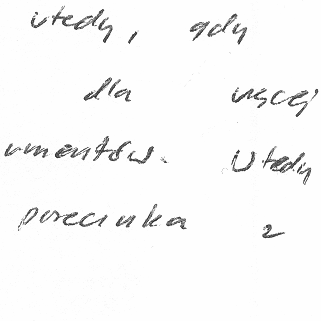 wtedy, gdy
dla więcej
umentów. Wtedy
przecinka z